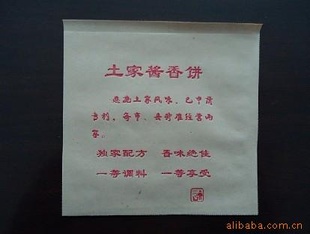 土家酱香饼
这是土家风味，已申请
专利。每市、县特准经营两
家。
独家配方 香味绝佳
一等调料 一等享受
alibaba.com.cn